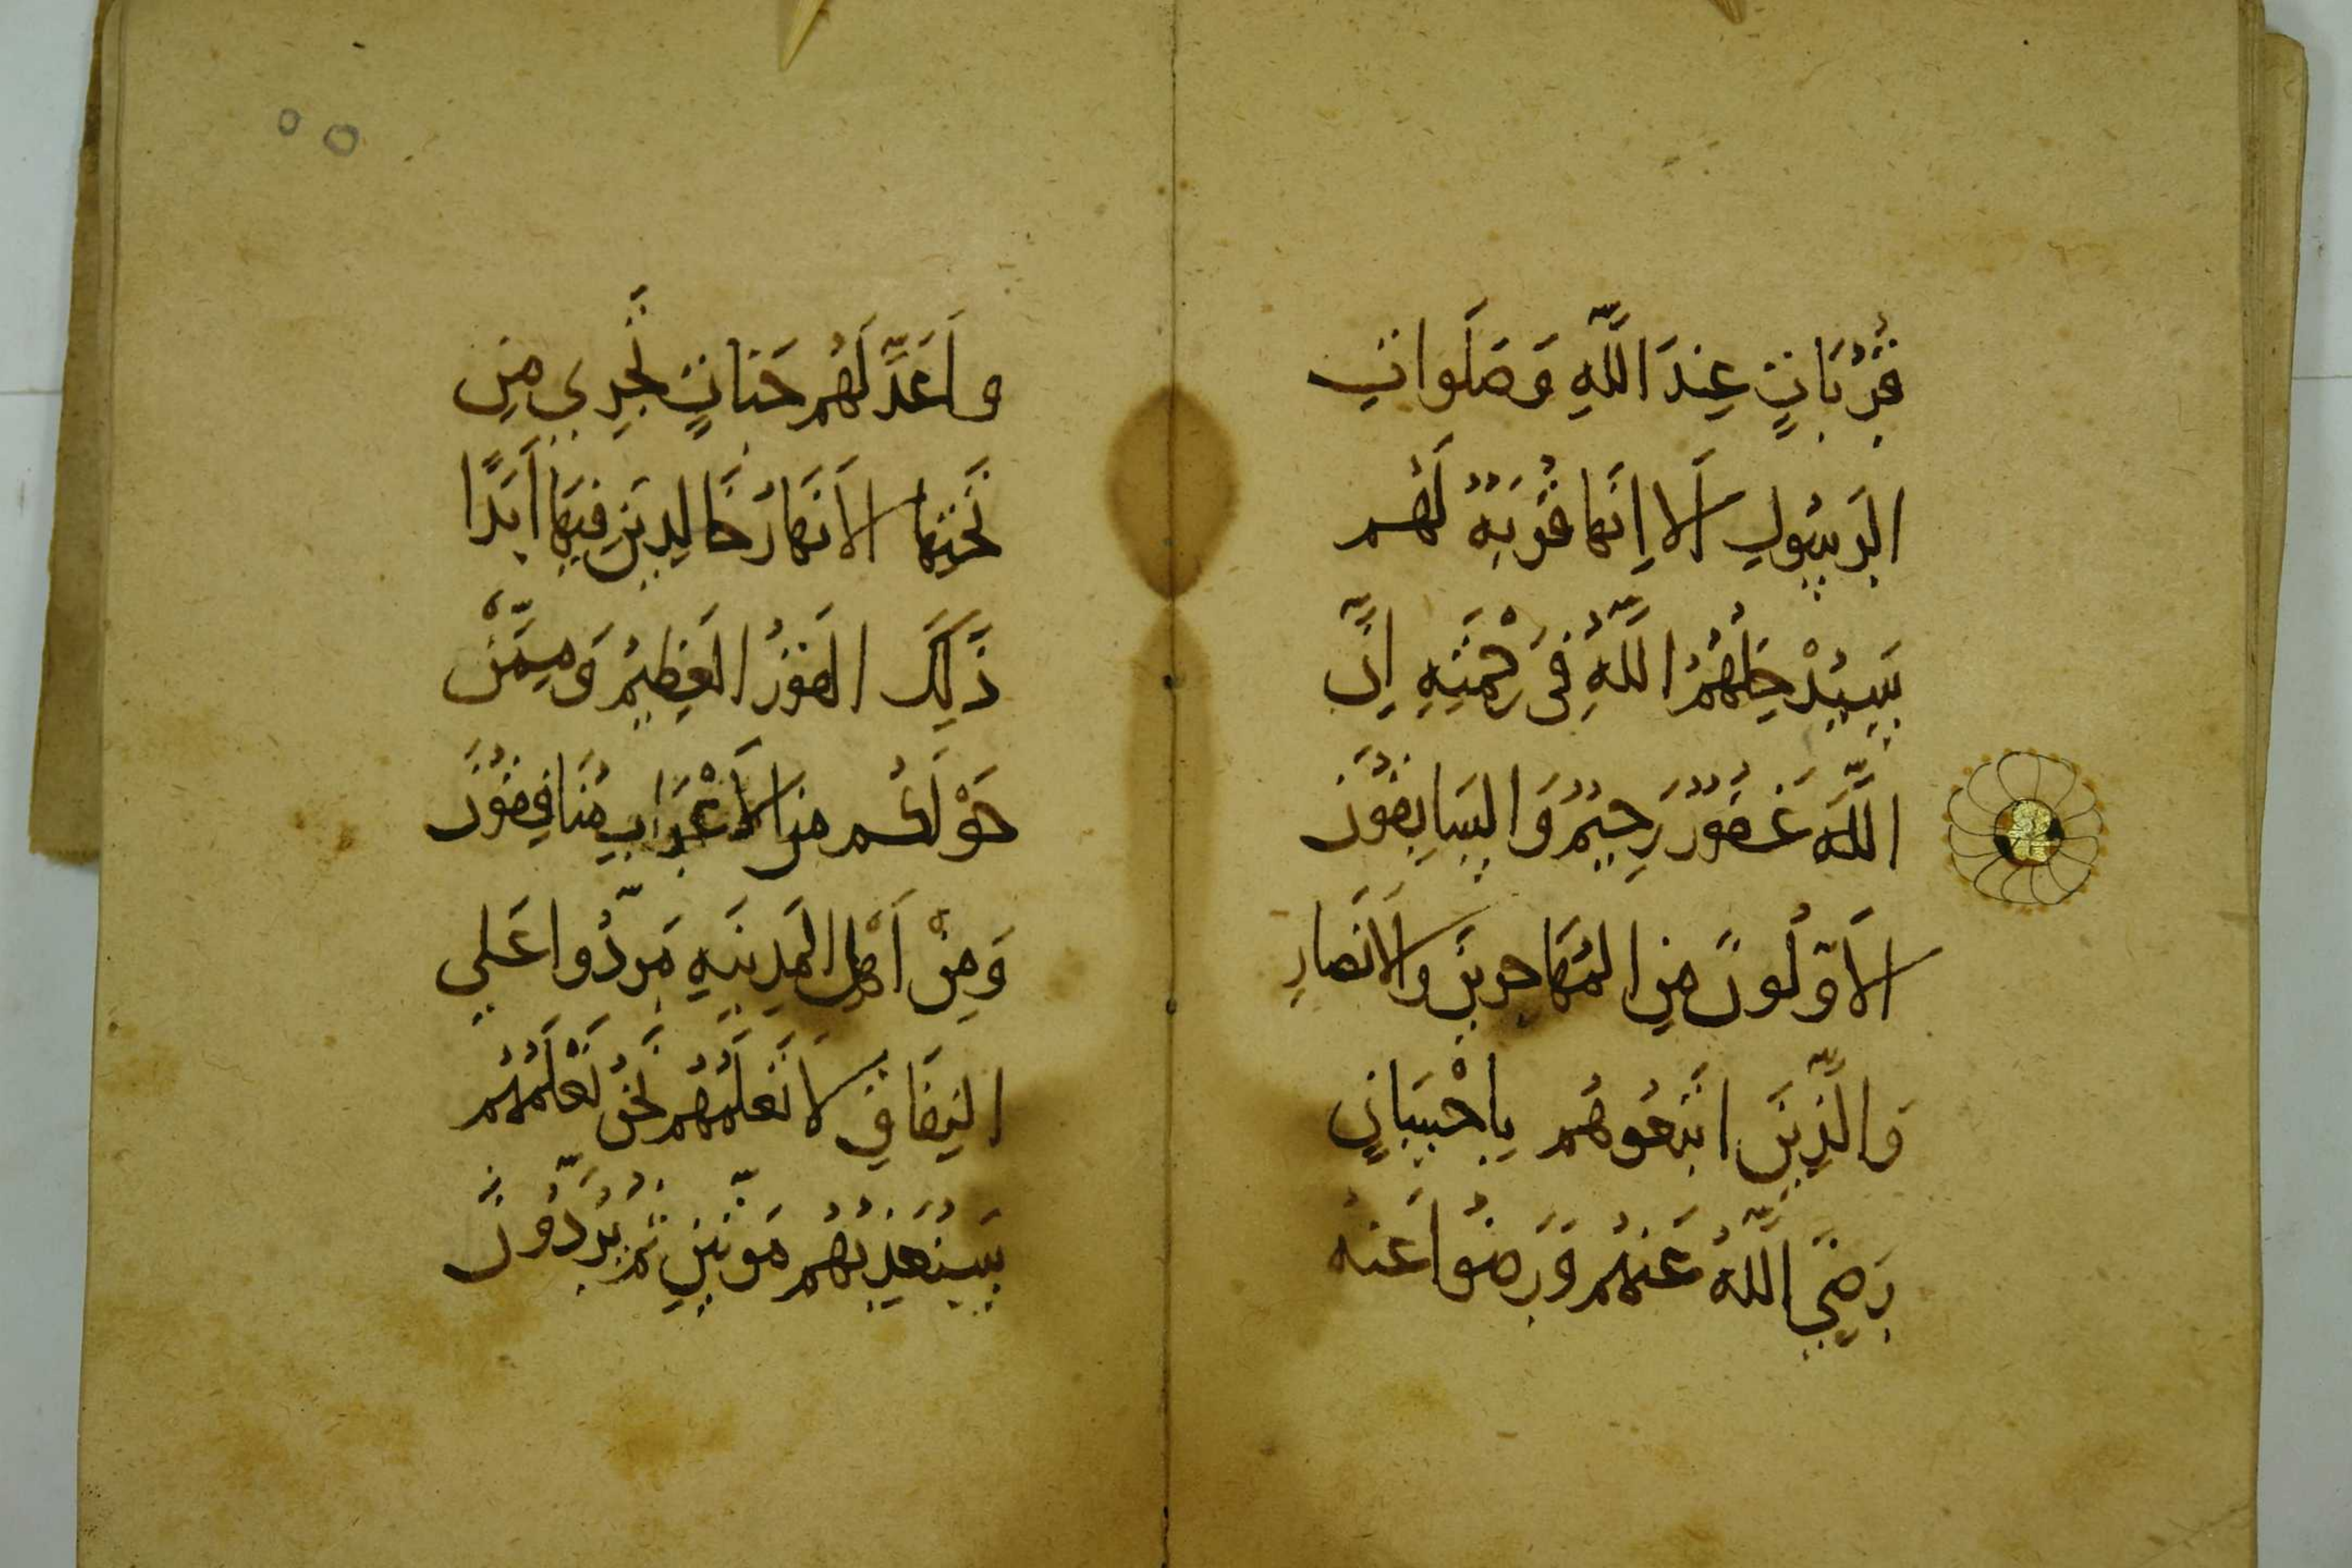 قُرُبَاتٍ عِندَ اللَّهِ وَصَلَوَاتِ
الرَسُولِ أَلَا إِنَهَا قُرْبَةٌ لَهُم
سَيُدْخِلُهُمُ اللَّهُ فِى رَحْمَتِهِ إِنَّ
اللَّهَ غَفُورٌ رَحِيمٌ وَالسَابِقُونَ
الأَوَّلُونَ مِنَ المُهَاجِرِينَ وَالأَنصَارِ
وَالَّذِينَ اتَبَعُوهُم بِإِحْسَانٍ
رَضِيَ اللَّهُ عَنهُم وَرَضُوا عَنهُ
وأَعَدَّ لَهُم جَنَاتٍ تَجرِي مِن
تَحتِهَا الأَنهَارُ خَالِدِينَ فِيهَا أَبَدًا
ذَلِكَ الفَوزُ العَظِيمُ وَمِمَّنْ
حَوْلَكُم مِنَ الأَعْرَابِ مُنَافِقُونَ
وَمِنْ أَهْلِ المَدِينَةِ مَرَدُّوا عَلَى
النِفَاقِ لَا تَعلَمُهُم نَحنُ نَعْلَمُهُم
سَنُعَذِبُهُم مَرَّتَينِ ثُمَّ يُرَدُّونَ
٥٥